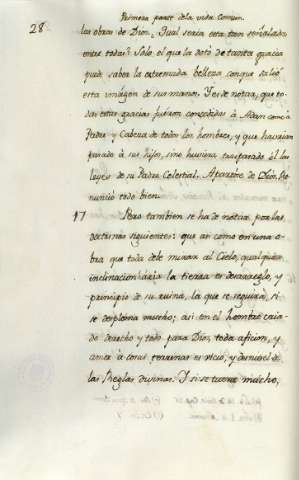 Primera parte dela vida comun.
28.
las obras de Dios, Qual seria esta tan señalada
entre todas? Solo el que la dotó de tanta gracia
pudo saber la extremada belleza con que salió
esta imagen de sus manos. Y es de notar, que to-
das estas gracias fueron concedidas à Adan como à
Padre y Cabeza de todos los hombres, y que havrian
pasado à sus hijos, sino huviera traspasado él las
leyes de su Padre Celestial. Apartose de Dios, Re-
nunció todo bien.
17 Pero tambien se ha de notar por las
doctrinas siguientes: que asi como en una o-
bra que toda debe mirar al Cielo, qualquiera
inclinacion hazia la tierra es desarreglo, y
principio de su ruina, la que se seguirá, si
se desploma mucho; asi en el hombre cria-
do derecho y todo para Dios, toda aficion, y
amor à cosas terrenas es vicio, y desnivel de
las Reglas divinas. Y si se tuerce mucho,